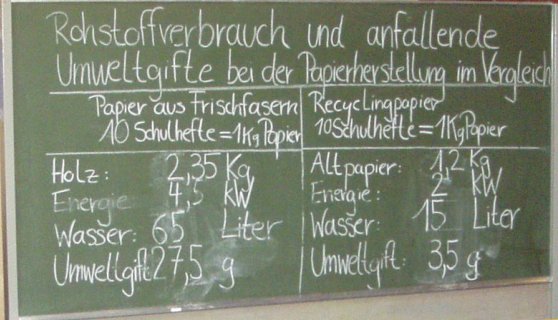 Rohstoffverbrauch und anfallende
Umweltgifte bei der Papierherstellung im Vergleich
Papier aus Frischfasern
10 Schulhefte = 1Kg Papier
Holz: 2,35 Kg
Energie: 4,5 kW
Wasser: 65 Liter
Umweltgift: 27,5 g
Recyclingpapier
10 Schulhefte = 1Kg Papier
Altpapier: 1,2 Kg
Energie: 2 kW
Wasser: 15 Liter
Umweltgift: 3,5 g